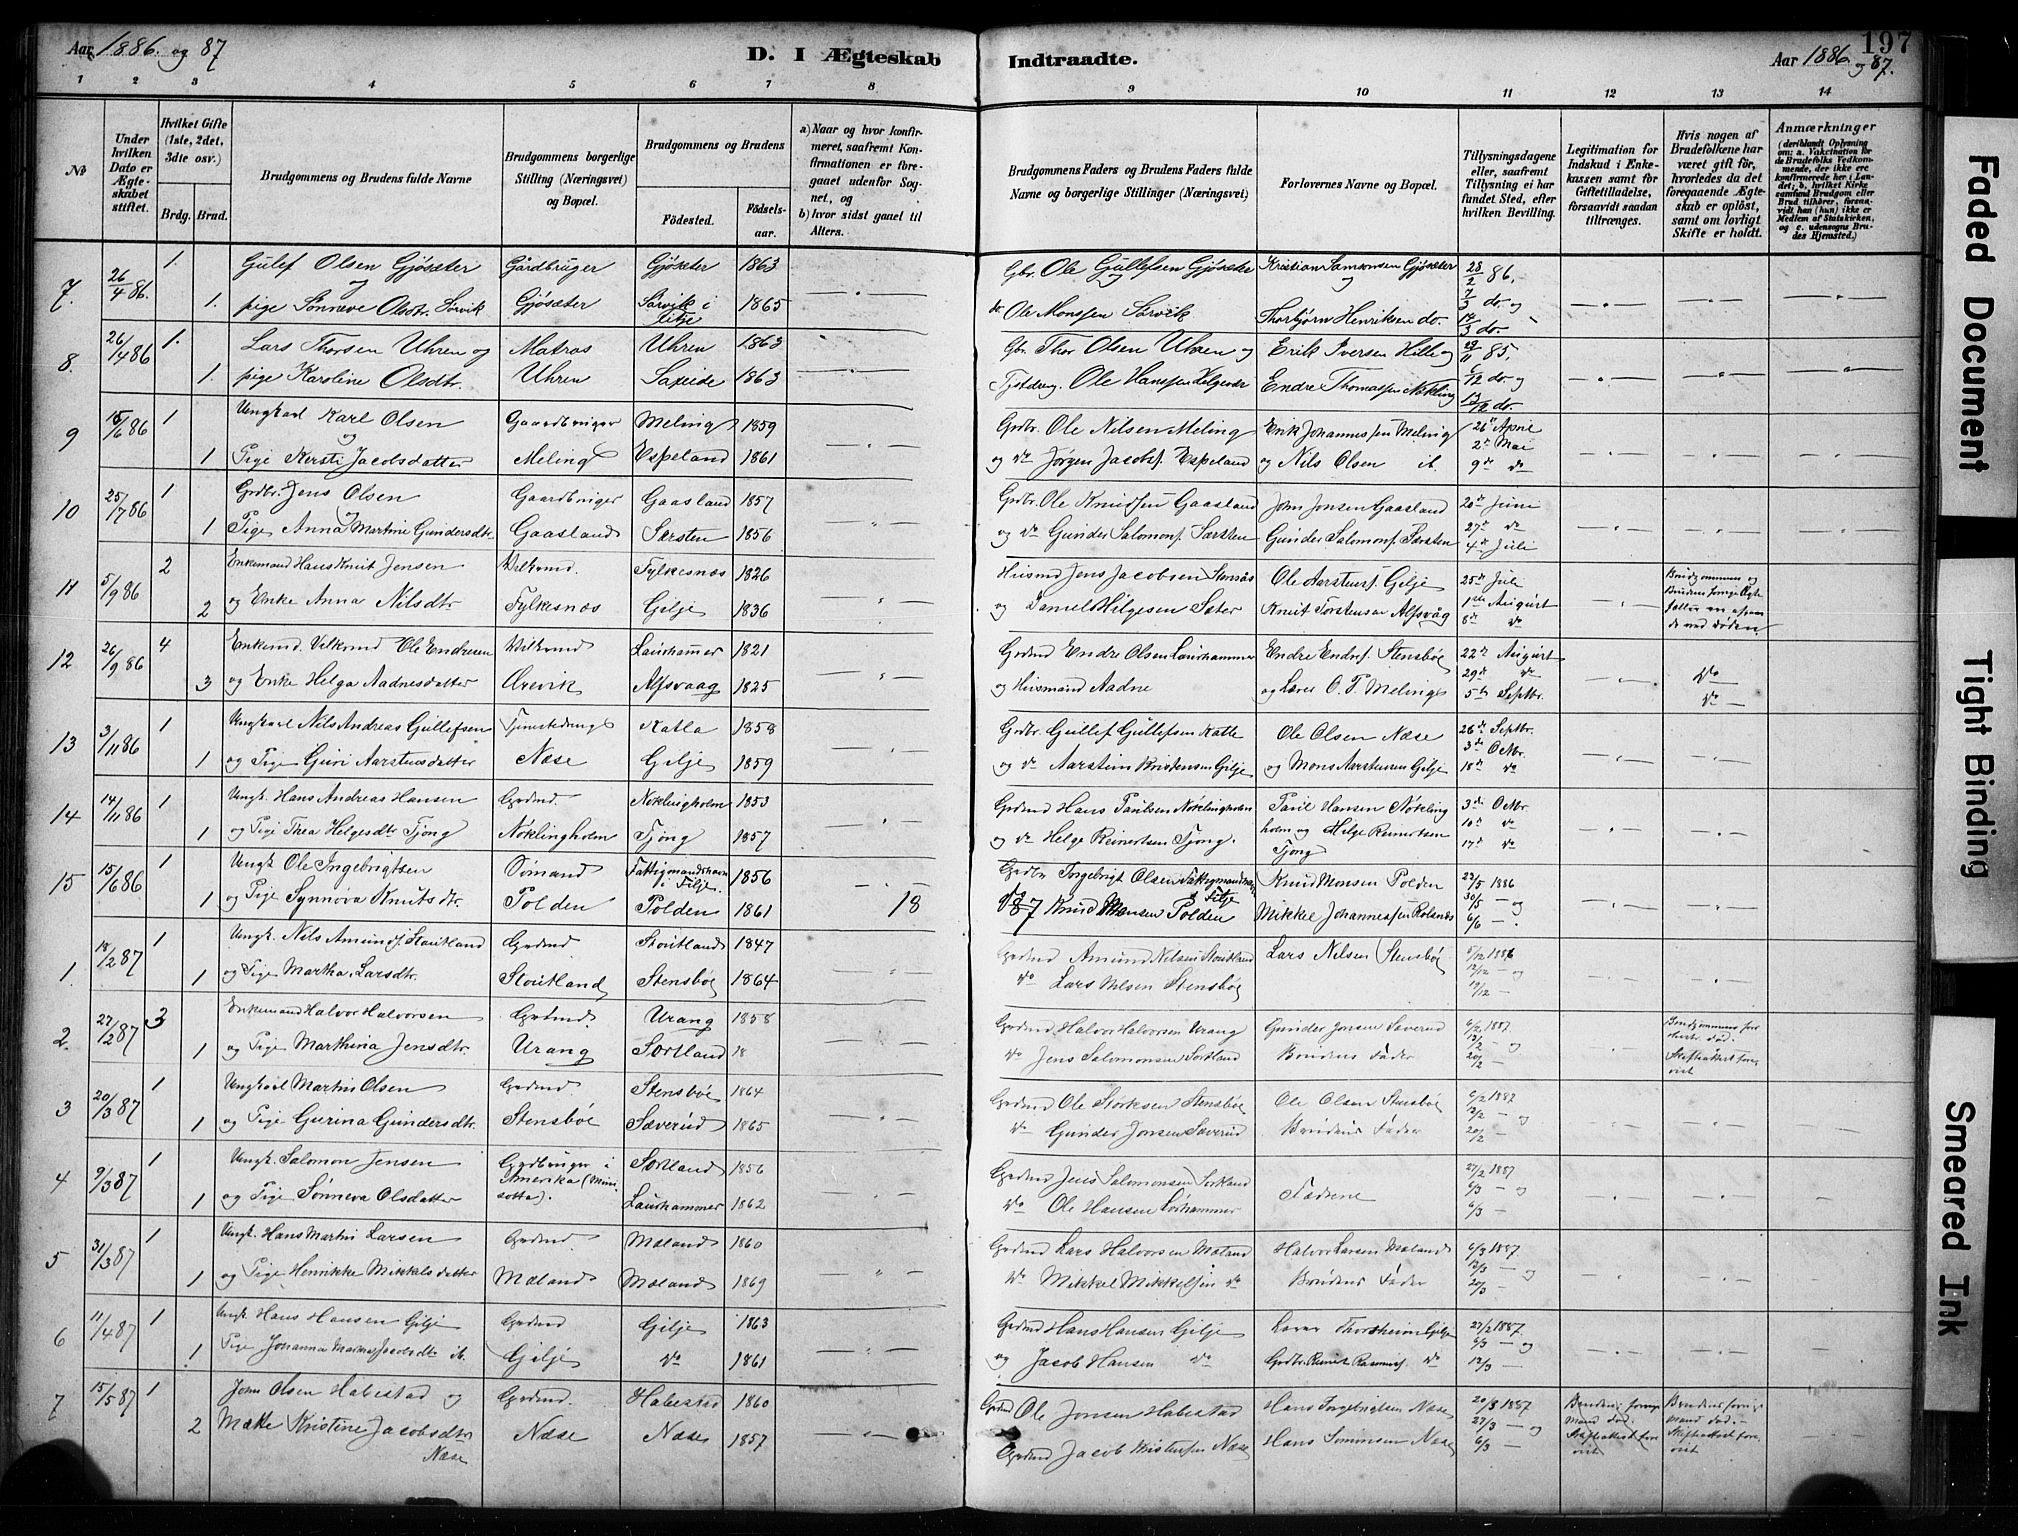 Aar 1886. og 87
D. I Ægteskab
Indtraadte.
Aar 1886. og 87.
197
1 2 3 4 5 6 7 8 9 10 11 12 13 14
No
Under hvilken Dato er Ægteskabet stiftet.
Hvilket Gifte (1ste, 2det, 3die osv.)
Brdg. Brud.
Brudgommens og Brudens fulde Navne
Brudgommens borgerlige Stilling (Næringsvei) og Bopæl.
Brudgommens og Brudens
Födested.
Födselsaar.
a) Naar og hvor konfirmeret, saafremt Konfirmationen er foregaaet udenfor Sognet, og
b) hvor sidst gaaet til Alters.
Brudgommens Faders og Brudens Faders fulde Navne og borgerlige Stillinger (Næringsvei)
Forlovernes Navne og Bopæl.
Tillysningsdagene eller, saafremt Tillysning ei har fundet Sted, efter hvilken Bevilling.
Legitimation for Indskud i Enkekassen samt for Giftetilladelse, forsaavidt saadan tiltrænges.
Hvis nogen af Brudefolkene har været gift för, hvorledes da det foregaaende Ægteskab er oplöst, samt om lovligt Skifte er holdt.
Anmærkninger (deriblandt Oplysning om: a. Vaccination for de Brudefolks Vedkommende, der ikke ere konfirmerede her i Landet; b. hvilket Kirkesamfund Brudgom eller Brud tilhörer, forsaavidt han (hun) ikke er Medlem af Statskirken, og c. udensogns Brudes Hjemsted.)
7. 26/4 86. 1. Gulef Olsen Gjøsæter og Gårdbruger Gjøsæter 1863 Gbr. Ole Gullefsen Gjøsæter Kristian Samsonsen Gjøsæter og 28/2 86.
1. pige Sønneve Olsdtr. Sørvik Gjøsæter Sørvik i Fitje 1865 do. Ole Monssen Sørvik Thorbjørn Henriksen do. 7/3 do. og 14/3 do.
8. 26/4 86 1. Lars Thorsen Uhren og Matros Uhren 1863 Gbr. Thor Olsen Uhren og Erik Iversen Hille og 29/11 85.
1. pige Karoline Olsdtr. Uhren Saxeide 1863 Ole Hanssen Helgevær Endre Thomassen Nøkling 6/12 do. og 13/12 do.
9 15/6 86 1 Ungkarl Karl Olsen og Gaardbruger Meling 1859 Grdbr. Ole Nilsen Meling Erik Johannessen Meling 26de April
1 Pige Kersti Jacobsdatter Meling Espeland 1861 og do Jørgen Jacobs. Espeland og Nils Olsen ib. 2de Mai 9de do
10 25/7 86 1 Grdbr. Jens Olsen og Gaardbruger Gaasland 1857 Grdbr. Ole Knudsen Gaasland John Jonsen Gaasland 20de Juni
1 Pige Anna Martine Gundersdtr. Gaasland Særsten 1856 og do Gunder Salomons. Særsten Gunder Salomons. Særsten 27de do 4de Juli
11 5/9 86 2 Enkemand Hans Knut Jensen Vilkrmd. Fylkesnæs 1826 Husmd Jens Jacobsen Ole Aarstens. Gilje 25de Juli
2 og Enke Anna Nilsdtr Fylkesnæs Gilje 1836 og Daniel Helgesen Sæter Knut Torstensen Alfsvåg 1ste August 8de do
Brudgommens og Brudens forrige Ægtefæller en afgaaede ved Døden
12 26/9 86 4 Enkemd. Vilkrmd Ole Endresen Vilkrmd Laurhammer 1821 Grdmd Endre Olsen Laurhammer Endre Endrs. Stensbøe 22de August
3 og Enke Helga Aadnesdatter Ørevik Alfsvaag 1825 og Husmand Aadne og Lærer O. T. Meling 29de do 5te Septbr. do do
13 3/11 86 1 Ungkarl Nils Andreas Gullefsen Katla 1858 Grdbr. Gullef Gullefsen Katle Ole Olsen Næse 26de Septbr.
1 og Pige Guri Aarstensdatter Næse Gilje 1859 og do Aarstein Kristensen Gilje og Mons Aarstensen Gilje 3de Octbr. 10de do
14 14/11 86 1 Ungk. Hans Andreas Hansen Grdmd. Nøklingholm 1853 Grdmd Hans Paulsen Nøklingholm Paul Hansen Nøkling 3de Octbr.
1 og Pige Thea Helgesdtr Tjong Nøklingholm Tjong 1857 og do Helge Reinertsen Tjong. holm og Helge Reinertsen Tjong 10de do 17de do
15 15/6 86 1 Ungk Ole Ingebrigtsen Sømand Fattigmandshavn i Fitje 1856 Grdbr Ingebrigt Olsen Fattigmandshavn i Fitje Knud Monsen Polden 23/5 1886
1 og Pige Synnøva Knutsdtr. Polden Polden 1861 Knud Monsen Polden Mikkel Johannessen Rolsnæs 30/5 — og 6/6 —
18 87
1. 18/2 87 1 Ungk. Nils Amunds. Stoutland Grdmd Stoutland 1847 Grdmd Amund Nilsen Stoutland Lars Nilsen Stensbøe 5/12 1886
1 og Pige Martha Larsdtr. Stoutland Stensbøe 1864 do Lars Nilsen Stensbøe 12/12 — og 19/12 —
2. 27/2 87 3 Enkemand Halvor Halvorsen Grdmd. Urang 1858 Grdmd Halvor Halvorsen Urang Gunder Jensen Sæverud 6/2 1887.
1 og Pige Marthina Jensdtr. Urang Sortland 18 do Jens Salomonsen Sortland Brudens Fader 13/2 — og 20/2
3 20/3 87 1 Ungkarl Martin Olsen Grdmd Stensbøe 1864 Grdmd Ole Størksen Stensbøe Ole Olsen Stensbøe 6/2 1887
1 og Pige Gurina Gundersdtr. Stensbøe Sæverud 1865 do Gunder Jonsen Sæverud Brudens Fader 13/2 — og 20/2 —
4 9/3 87 1 Ungk. Salomon Jensen Grdbruger i Amerika (Minisotta). Sortland 1856 Grdmd Jens Salomonsen Sortland Fædrene 27/2 1887
1 og Pige Sønneva Olsdatter Laurhammer 1862 do Ole Hansen Lørhammer 6/3 — og 6/3 —
5 31/3 87 1 Ungk. Hans Martin Larsen Grdmd. Mæland 1860 Grdmd Lars Halvorsen Mæland Halvor Larsen Mæland 6/3 1887.
1 og Pige Henrikke Mikkelsdatter Mæland Mæland 1869 do Mikkel Mikkelsen do Brudens Fader 13/3 — og 20/3 —
6 11/4 87 1 Ungk. Hans Hansen Gilje Grdmd Gilje 1863 Grdmd Hans Hansen Gilje Lærer Thorsheim Gilje 27/2 1887.
1 Pige Johanna Jacobsdtr ib. Gilje do 1861 og Jacob Hansen do Grdbr. Knut Rasmus. do 6/3 — og 13/3 —
7 15/5 87 1 John Olsen Habestad og Grdmd. Habestad 1860 Grdmd Ole Jonsen Habestad Hans Ingebrigtsen Næse 20/3 1887
2 Mætte Kristine Jacobsdtr. Næse Næse Næse 1857 Grdmd Jacob Næse Hans Simonsen Næse 27/3 — og 6/3 —
Brudens forrige Mand død. Skifteattest forevist
Brudens forrige Mand død. Skifteattest forevist
Faded Document
Tight Binding
Smeared Ink